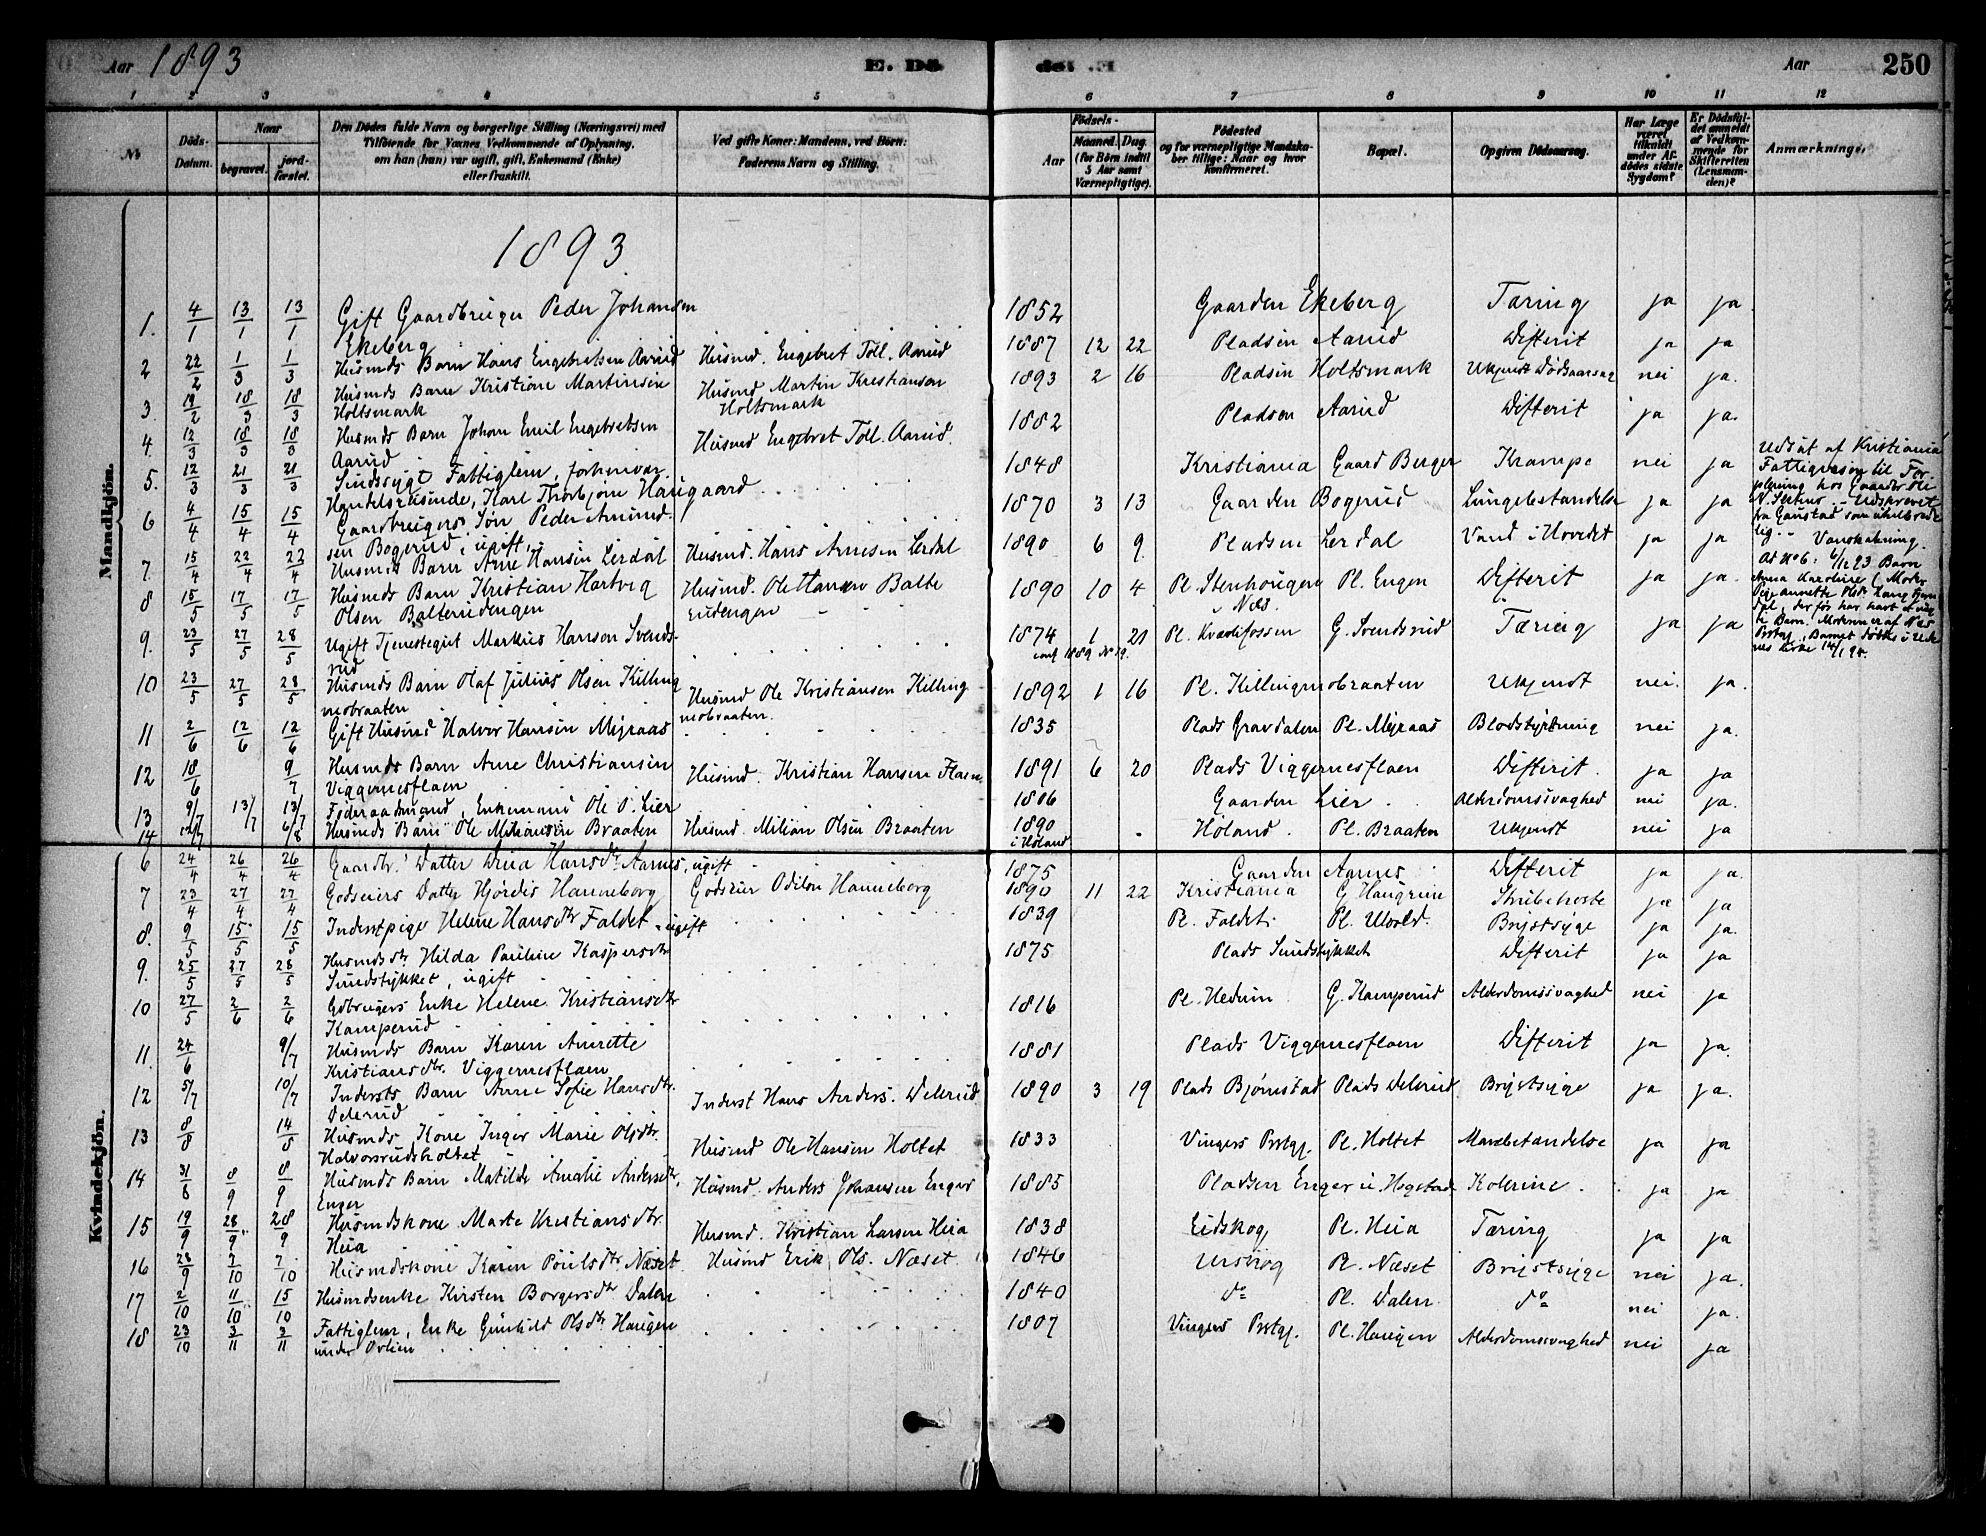 Aar 1893
E. Dö
de. E.
Aar
250
1 2 3 4 5 6 7 8 9 10 11 12
No
Döds-Datum.
Naar
begravet.
jordfæstet.
Den Dödes fulde Navn og borgerlige Stilling (Næringsvei) med
Tilföiende for Voxnes Vedkommende af Oplysning,
om han (hun) var ugift, gift, Enkemand (Enke)
eller fraskilt.
Ved gifte Koner: Mandens, ved Börn:
Faderens Navn og Stilling.
Födsels-
Aar
Maaned. Dag.
(for Börn indtil
5 Aar samt
Værnepligtige).
Födested
og for værnepligtige Mandskaber tillige: Naar og hvor
konfirmeret.
Bopæl.
Opgiven Dödsaarsag.
Har Læge
været
tilkaldt
under Afdödes sidste
Sygdom?
Er Dödsfaldet anmeldt
af Vedkommende for
Skifteretten
(Lensmanden)?
Anmærkninger
Mandkjön.
1893
1. 4/1 13/1 13/1 Gift Gaardbruger Peder Johansen
Ekeberg
1852 Gaarden Ekeberg Tæring ja ja
2 22/2 1/3 1/3 Husmds Barn Hans Engebretsen Aarud Husmd. Engebret Toll. Aarud 1887 12 22 Pladsen Aarud Difterit ja ja
3. 19/2 18/3 18/3 Husmds Barn Kristian Martinsen
Holtsmark
Husmd Martin Kristiansen
Holtsmark
1893 2 16 Pladsen Holtsmark Ukjendt Dødsaarsag nei ja.
4. 12/3 18/3 18/3 Husmds Barn Johan Emil Engebretsen
Aarud
Husmd Engebret Toll. Aarud. 1882 Pladsen Aarud Difterit ja ja.
5. 12/3 21/3 21/3 Sindssygt Fattiglem, forhenvær.
Handelsreisende, Karl Thorbjørn Haugaard
1848 Kristiania Gaard Berger Krampe nei ja
Udsat af Kristiania
Fattigvæsen til Forpleining hos Gaardbr Oli
Udskrevet
fra Gaustad som uhelbredelig. - Vanskabning.
6 4/4 15/4 15/4 Gaardbrugers Søn Peder Amundsen Bogerud, ugift,
1870 3 13 Gaarden Bogerud Lungebetændelse ja ja
7. 15/4 22/4 22/4 Husmds Barn Arne Hansen Lerdal Husmd. Hans Arnesen Lerdal 1890 6 9 Pladsen Lerdal Vand i Hovedet ja ja
8 15/5 17/5 17/5 Husmds Barn Kristian Hartvig
Olsen Balterudengen
Husmd. Ole Hansen Balterudengen
1890 10 4 Pl. Stenhougen Pl. Engen Difterit ja ja.
i Næs.
Ad No 6: 6/12 93 Barn
Anna Karoline (Moder
9. 23/5 27/5 28/5 Ugift Tjenestegut Markus Hansen Svendsrud
1874 1 21 Pl. Kvædfossen G. Svendsrud Tæring ja ja
conf 1889 No 19.
10 23/5 27/5 28/5 Husmds Barn Olaf Julius Olsen Killingmobraaten
Husmd Ole Kristiansen Killingmobraaten.
1892 1 16 Pl. Killingmobraaten Ukjendt nei. ja.
11 2/6 12/6 12/6 Gift Husmd Halvor Hansen Myraas 1835 Plads Gravdalen Pl. Myraas Blodstyrtning nei ja.
12 18/6 9/7 Husmds Barn Arne Christiansen
Viggernesflaen
Husmd. Kristian Hansen Flaen 1891 6 20 Plads Viggernesflaen Difterit. ja ja
13 9/7 13/7 13/7 Føderaadsmand, Enkemand Ole O. Lier 1806 Gaarden Lier. Alderdomssvaghed nei ja.
14 6/8 Husmds Barn Ole Miliansen Braaten Husmd. Milian Olsen Braaten 1890 Høland. Pl. Braaten Ukjendt nei ja
i Høland
Kvindekjön.
6 24/4 26/4 26/4 Gaardbr. Datter Dina Hansdtr Aarnes, ugift 1875 Gaarden Aarnes Difterit ja ja.
7 23/4 27/4 27/4 Godseiers Datter Hjørdis Hanneborg Godseier Odilon Hanneborg 1890 11 22 Kristiania G. Haugrim Strubehoste ja ja
8. 9/5 15/5 15/5 Inderstpige Helene Hansdtr Faldet, ugift 1839 Pl. Faldet Brystsyge ja ja.
9. 25/5 27/5 28/5 Husmdsdtr Hilda Pauline Kaspersdtr
Sundstykket, ugift
1875 Plads Sundstykket Difterit ja ja
10 27/5 2/6 2/6 Gdbrugers Enke Helene Kristiansdtr
Kamperud
1816 Pl. Hedum G. Kamperud Alderdomssvaghed nei ja
11. 24/6 9/7 Husmds Barn Karen Annette
Kristiansdtr. Viggernesflaen
1881 Plads Viggernesflaen Difterit ja ja.
12 5/7 10/7 Indersts Barn Anne Sofie Hansdtr.
Delerud
Inderst Hans Anders. Delerud 1890 3 19 Plads Bjørnstad Plads Delerud Brystsyge ja ja.
13 8/8 14/8 Husmds Kone Inger Marie Olsdtr.
Halvorsrudsholtet
Husmd Ole Hansen Holtet 1833 Vingers Prstgj. Pl. Holtet Mavebetændelse ja ja
14 31/8 8/9 8/9 Husmds Barn Matilde Amalie Andersdtr,
Enger
Husmd. Anders Johansen Enger 1885 Pladsen Enger u. Hogstad Kolerine. ja ja
15 19/9 28/9 28/9 Husmdskone Marte Kristiansdtr.
Heia
Husmd. Kristian Larsen Heia 1838 Eidskog Pl. Heia Tæring ja ja
16 28/9 7/10 7/10 Husmdskone Karen Poulsdtr Næset. Husmd Erik Ols. Næset. 1846 Urskog Pl. Næset Brystsyge nei ja.
17 2/10 11/10 15/10 Husmdsenke Kirsten Borgersdtr Dalen 1840 do Pl. Dalen. do nei ja.
18 23/10 3/11 3/11 Fattiglem, Enke Gunhild Olsdtr Haugen
under Ovlien
1807 Vingers Prstgj. Pl. Haugen Alderdomssvaghed nei ja